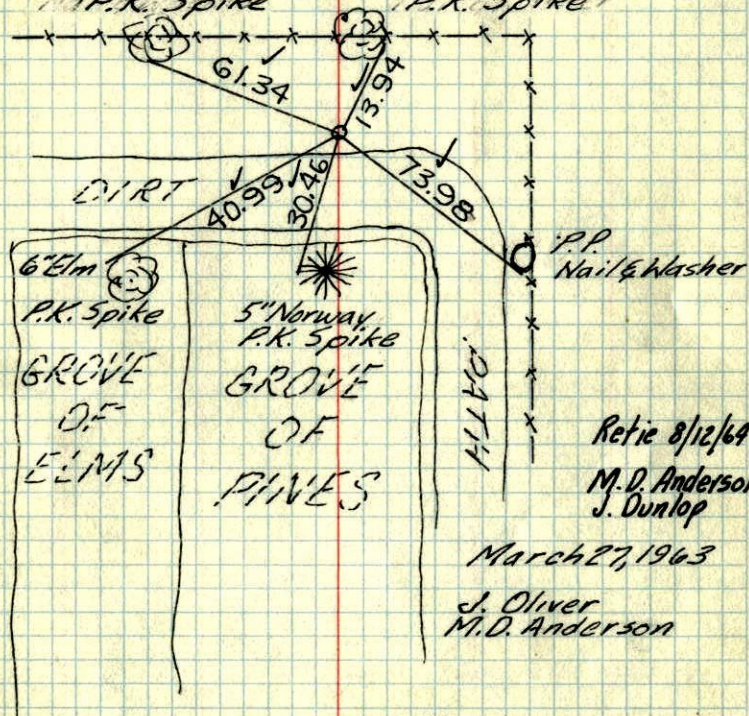 P.K. Spike
P.K. Spike
61.34
13.94
DIRT
40.99
30.46
73.98
6"Elm
P.K. Spike
5"Norway
P.K. Spike
P.P.
Nail & Washer
GROVE
OF
ELMS
GROVE
OF
PINES
PATH
Retie 8/12/64
M.D. Anderson
J. Dunlop
March 27, 1963
J. Oliver
M.D. Anderson